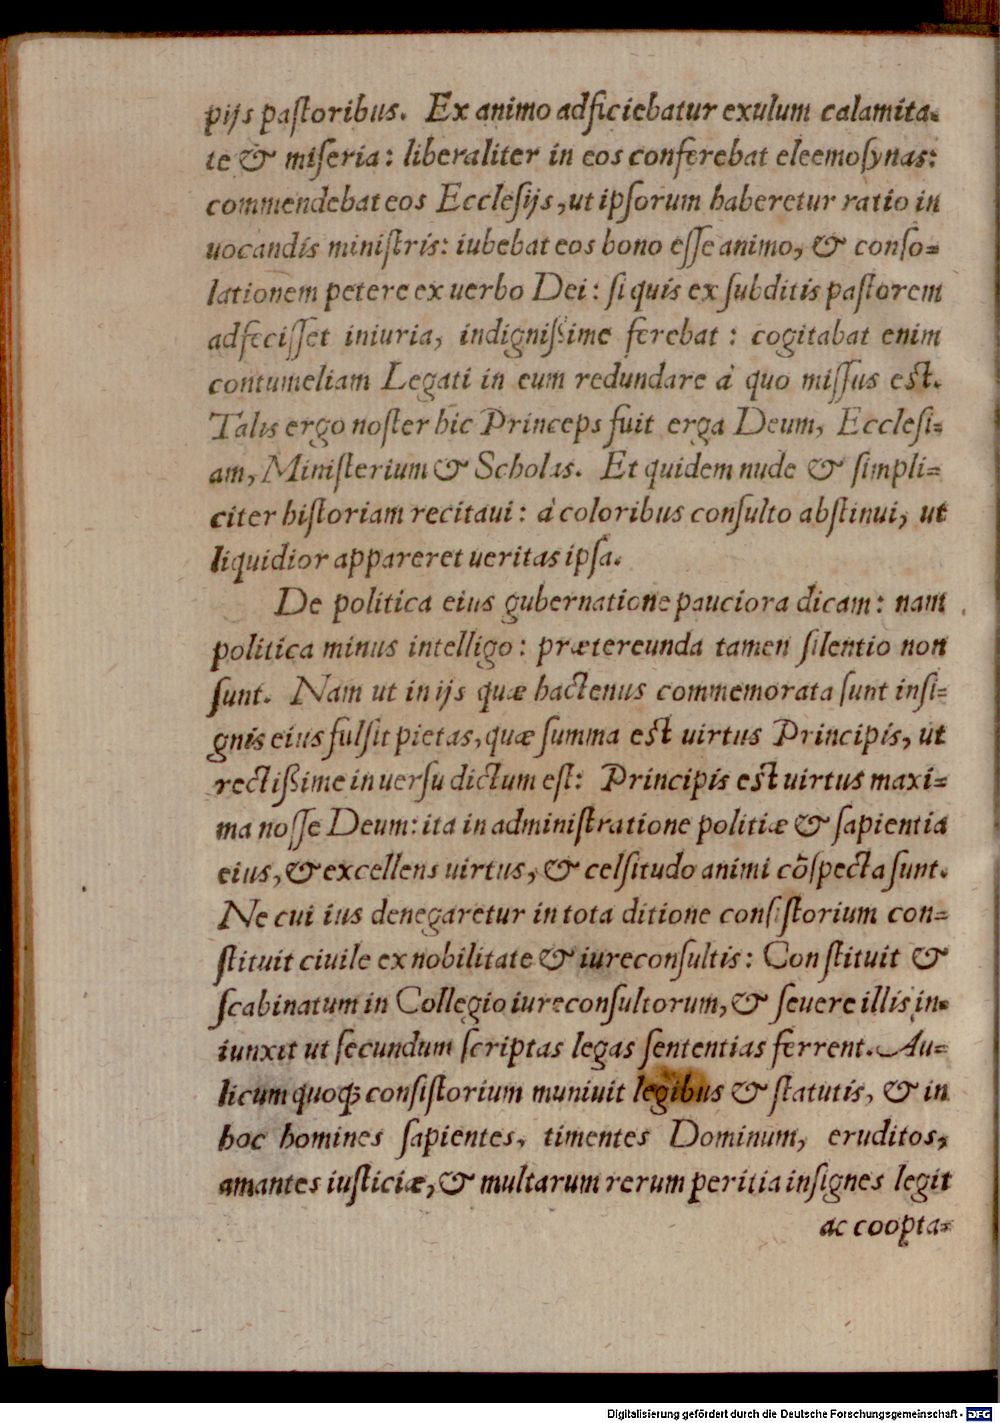 pijs pastoribus. Ex animo adficiebatur exulum calamita-
te & miseria: liberaliter in eos conferebat eleemosynas:
commendebat eos Ecclesijs, ut ipsorum haberetur ratio in
uocandis ministris: iubebat eos bono esse animo, & conso-
lationem petere ex uerbo Dei: si quis ex subditis pastorem
adfecisset iniuria, indignißime ferebat: cogitabat enim
contumeliam Legati in eum redundare à quo missus est.
Talis ergo noster hic Princeps fuit erga Deum, Ecclesi-
am, Ministerium & Scholas. Et quidem nude & simpli-
citer historiam recitaui: à coloribus consulto abstinui, ut
liquidior appareret ueritas ipsa.
De politica eius gubernatione pauciora dicam: nam
politica minus intelligo: prætereunda tamen silentio non
sunt. Nam ut in ijs quæ hactenus commemorata sunt insi-
gnis eius fulsit pietas, quæ summa est uirtus Principis, ut
rectißime in uersu dictum est: Principis est uirtus maxi-
ma nosse Deum: ita in administratione politiæ & sapientia
eius, & excellens uirtus, & celsitudo animi cõspecta sunt.
Ne cui ius denegaretur in tota ditione consistorium con-
stituit ciuile ex nobilitate & iureconsultis: Constituit &
scabinatum in Collegio iureconsultorum, & seuere illis in-
iunxit ut secundum scriptas legas sententias ferrent. Au-
licum quoq; consistorium muniuit legibus & statutis, & in
hoc homines sapientes, timentes Dominum, eruditos,
amantes iusticiæ, & multarum rerum peritia insignes legit
ac coopta-
Digitalisierung gefördert durch die Deutsche Forschungsgemeinschaft - DFG